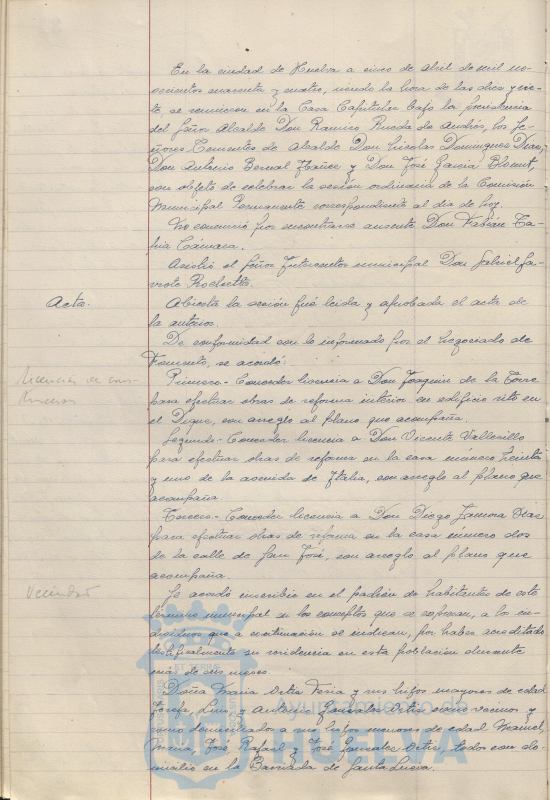 En la ciudad de Huelva a cinco de Abril de mil no-
vecientos cuarenta y cuatro, siendo la hora de las diez y
te, se reunieron en la Casa Capitular bajo la presidencia
del Señor Alcalde Don Ramiro Rueda de Andrés, los Se-
ñores Tenientes de Alcalde Don Nicolas Dominguez Diaz,
Don Antonio Bernal Ibañez y Don José Garcia
con objeto de celebrar la sesión ordinaria de la Comisión
Municipal Permanente correspondiente al dia de hoy.
No concurrió por encontrarse ausente Don Fabián
Cámara.
Asistió el Señor Interventor municipal Don Gabriel Ga-
Acta.
Abierta la sesión fué leida y aprobada el acta de
la anterior.
De conformidad con lo informado por el Negociado de
Fomento, se acordó:
Licencias de cons-
trucción
Primero.- Conceder licencia a Don Joaquin de la Torre
para efectuar obras de reforma interior en edificio sito en
el Dique, con arreglo al plano que acompaña.
Segundo.- Conceder licencia a Don Vicente Vallecillo
para efectuar obras de reforma en la casa número treinta
y uno de la avenida de Italia, con arreglo al plano que
acompaña.
Tercero.- Conceder licencia a Don Diego Zamora Diaz
para efectuar obras de reforma en la casa número dos
de la calle de San José, con arreglo al plano que
acompaña.
Vecindad
Se acordó inscribir en el padrón de habitantes de este
término municipal en los conceptos que se expresan, a los in-
dividuos que a continuación se indican, por haber acreditado
testificalmente su residencia en esta población durante
más de seis meses.
Doña Maria Ortiz Feria y sus hijos mayores de edad
Josefa, Luis y Antonio Gonzalez Ortiz como vecinos y
como domiciliados a sus hijos menores de edad Manuel,
Maria, José Rafael y José Gonzalez Ortiz, todos con do-
micilio en la Barriada de Santa Lucia.
Ayuntamiento de
HUELVA